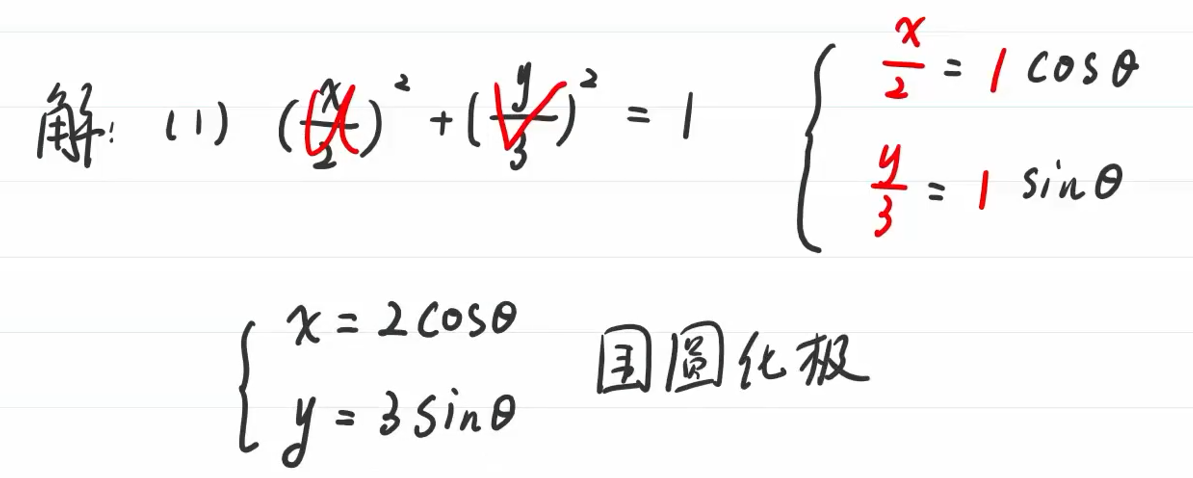 解: (1) (x/2)² + (y/3)² = 1
{ x/2 = 1 cosθ
y/3 = 1 sinθ
{ x = 2cosθ
y = 3sinθ
圆化极